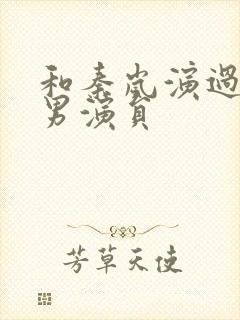 和秦岚演過
男演員
芳草天使